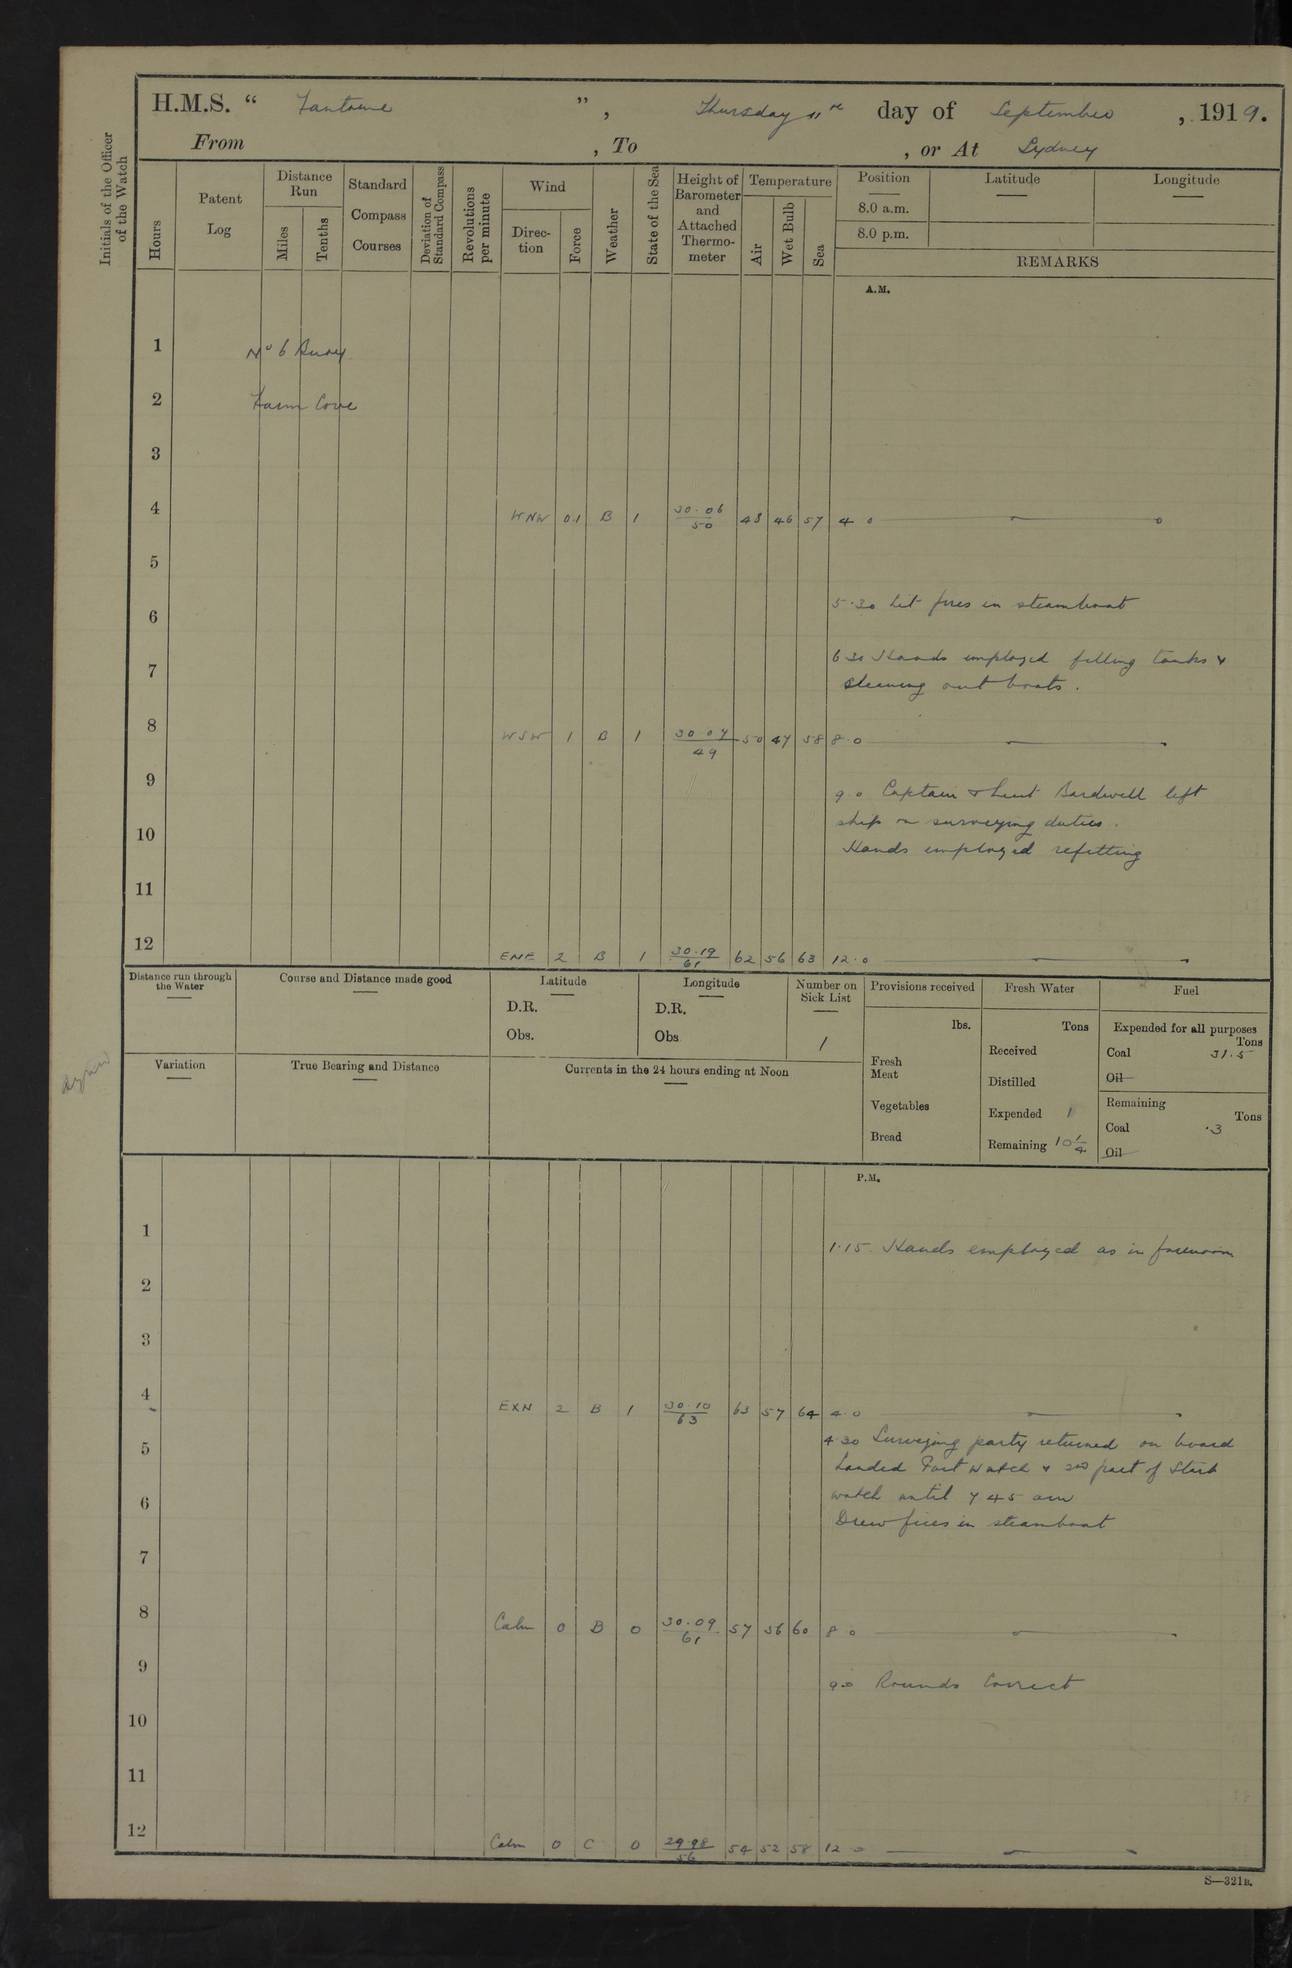 H.M.S. " Fantome ", Thursday 11th day of September, 1919.
From , To , or At Sydney
Initials of the Officer of the Watch
Hours
Patent Log
Distance Run
Miles
Tenths
Standard Compass Courses
Deviation of Standard Compass
Revolutions per minute
Wind
Direction
Force
Weather
State of the Sea
Height of Barometer and Attached Thermometer
Temperature
Air
Wet Bulb
Sea
Position
8.0 a.m.
8.0 p.m.
Latitude
Longitude
REMARKS
A.M.
1 No 6 Buoy
2 Farm Cove
3
4 WNW 0.1 B 1 30.06 50 48 46 57 4 0
5
6 5.30 Lit fires in steamboat
7 6 30 Hands employed filling tanks &
cleaning out boats.
8 WSW 1 B 1 30 07 49 50 47 58 8.0
9 9.0 Captain & Lieut Bardwell left
ship on surveying duties.
10 Hands employed refitting
11
12 ENE 2 B 1 30.19 61 62 56 63 12.0
Distance run through the Water
Course and Distance made good
Latitude
D.R.
Obs.
Longitude
D.R.
Obs
Number on Sick List
1
Provisions received
lbs.
Fresh Meat
Vegetables
Bread
Fresh Water
Tons
Received
Distilled
Expended 1
Remaining 10 1/4
Fuel
Expended for all purposes
Tons
Coal 31.5
Oil
Remaining
Tons
Coal .3
Oil
Variation
True Bearing and Distance
Currents in the 24 hours ending at Noon
P.M.
1 1.15 Hands employed as in forenoon
2
3
4 EXN 2 B 1 30.10 63 63 57 64 4.0
4 30 Surveying party returned on board
5 Landed Port watch & 2nd part of Starb
6 watch until 7 45 am
Drew fires in steamboat
7
8 Calm 0 B 0 30.09 61 57 56 60 8 0
9 9.0 Rounds Correct
10
11
12 Calm 0 C 0 29.98 56 54 52 58 12 0
S—321B.